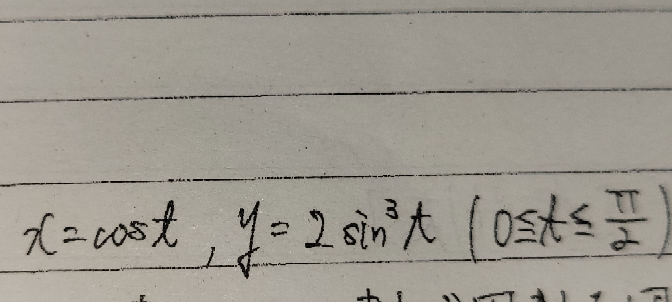 x = cos t , y = 2 sin³ t ( 0 ≦ t ≦ π/2 )